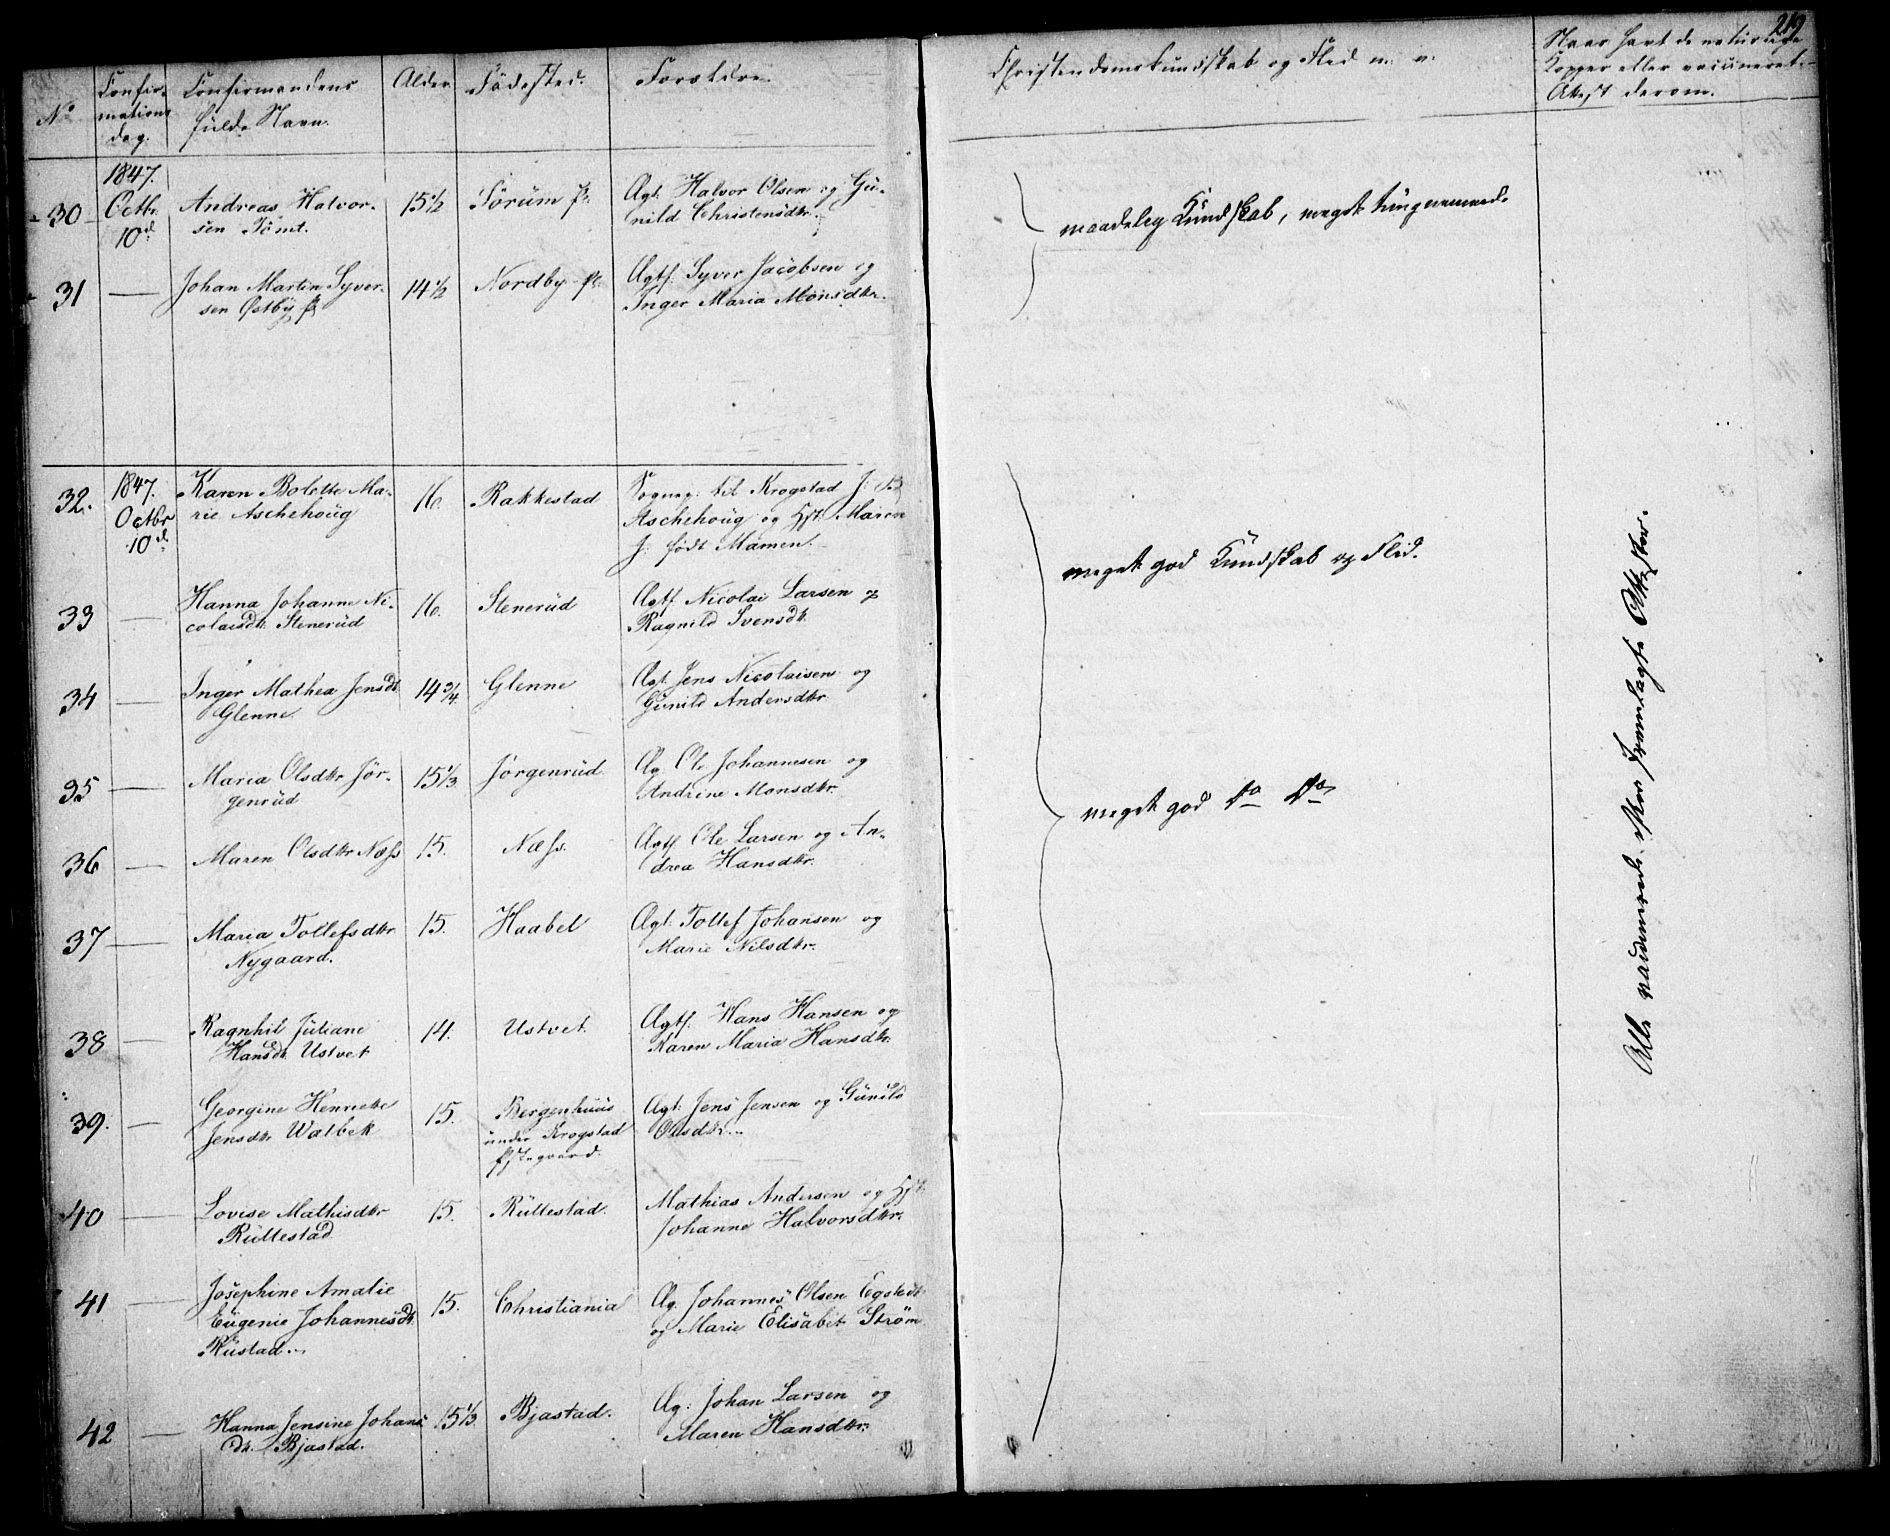 219
No
Confir-
mations
dag.
Confirmandens
fulde Navn.
Alder
Födested.
Forældre.
Christendomskundskab og Flid m. v.
Naar havt de naturlige
Kopper eller vaccineret.
Attest derom.
30
1847.
Octbr
10d
Andreas Halvor-
sen Tömt.
15½
Sörüm
Agt. Halvor Olsen og Gü-
nild Christensdtr.
maadelig Kündskab, meget tüngnemmede
31 —
Johan Martin Syver-
sen Østby
14½
Nordby
Agtf. Syver Jacobsen og
Inger Maria Monsdtr.
32.
1847.
Octbr
10d.
Karen Bolette Ma-
rie Aschehoüg
16.
Rakkestad
Sognep: til Krogstad J: B
Aschehoüg og Hst. Maren
J: födt Mamen.
meget god Kündskab og Flid.
33 —
Hanna Johanne Ni-
colaisdt. Stenerüd
16.
Stenerüd
Agtf Nicolai Larsen og
Ragnild Svensdt.
34 —
Inger Mathea Jensdt.
Glenne.
14¾
Glenne
Agt. Jens Nicolaisen og
Günild Andersdtr
35 —
Maria Olsdtr Jör-
genrüd
15⅓
Jörgenrüd
Ag Ole Johannesen og
Andrine Monsdtr.
meget god do do
36 —
Maren Olsdtr Næss
15.
Næss.
Agtf Ole Larsen og An-
drea Hansdtr.
37 —
Maria Tollefsdtr
Nygaard.
15.
Haabel
Agt. Tollef Johansen og
Marie Nilsdtr.
38 —
Ragnhil Jüliane
Hansdt. Ustvet
14.
Ustvet.
Agtf. Hans Hansen og
Karen Maria Hansdtr.
39. —
Georgine Henriette
Jensdtr Walbek
15.
Bergenhuüs
ünder Krogstad
Agt. Jens Jensen og Günild
Olsdtr.
40 —
Lovise Mathisdtr
Rüllestad
15.
Rüllestad.
Mathias Andersen og Hst.
Johanne Halvorsdtr.
41 —
Josephine Amalie
Eügenie Johannesdt.
Rüstad.
15.
Christiania
Ag. Johannes Olsen Egstedt
og Marie Elisabet Ström
42 —
Hanna Jensine Johans
dt. Bjastad.
15⅓
Bjastad.
Ag: Johan Larsen og
Maren Hansdtr.
Alle vaccinerede efter fremlagte Attester.